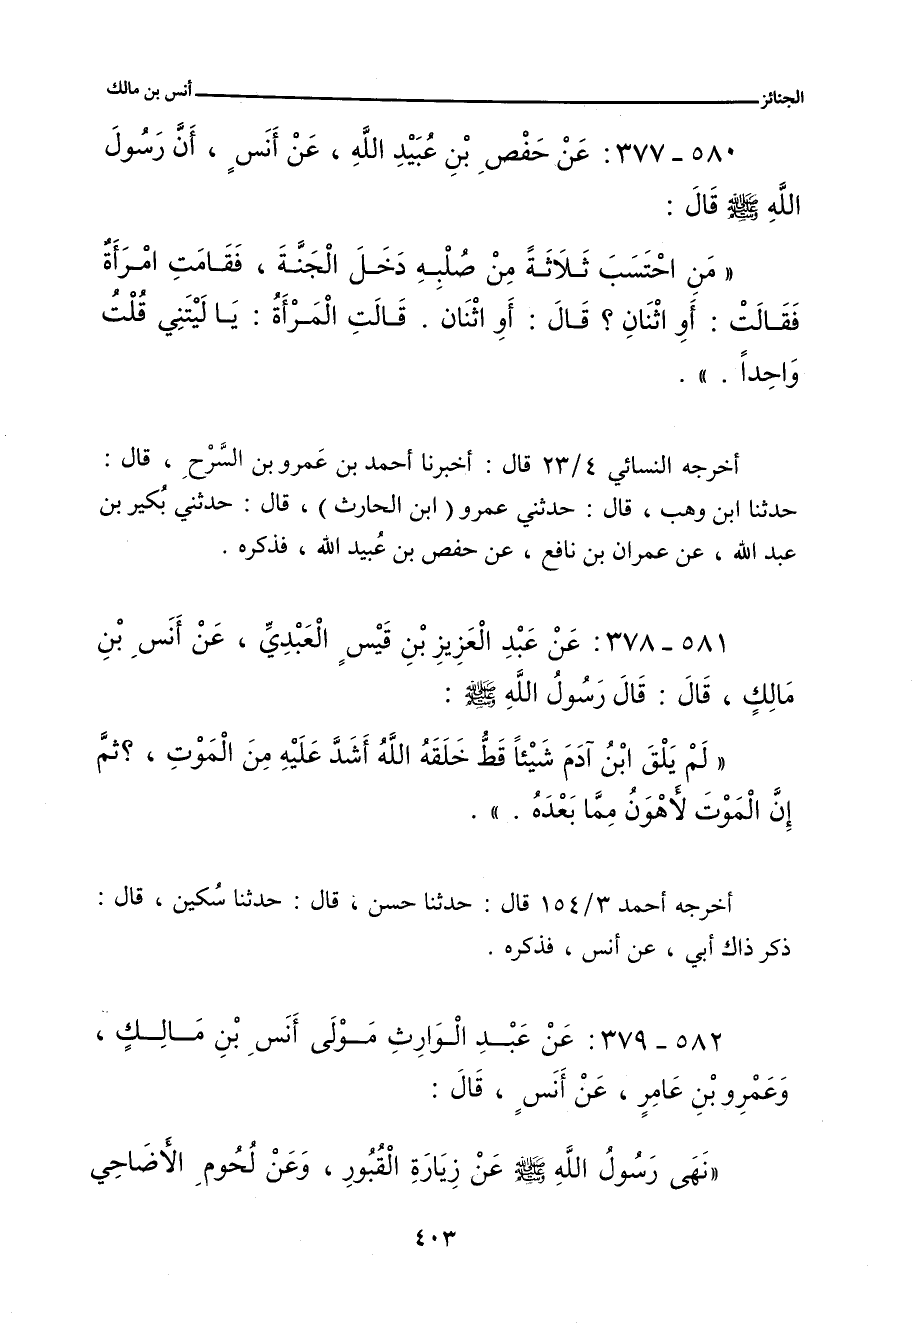 الجنائز ــــــــــــــــــــ أنس بن مالك
٥٨٠ ـ ٣٧٧: عَنْ حَفْصِ بْنِ عُبَيْدِ اللَّهِ ، عَنْ أَنَسٍ ، أَنَّ رَسُولَ
اللَّهِ ﷺ قَالَ :
« مَنِ احْتَسَبَ ثَـلَاثَـةً مِنْ صُلْبِـهِ دَخَـلَ الْجَنَّـةَ ، فَقَـامَتِ امْـرَأَةٌ
فَقَـالَتْ : أَوِ اثْنَانِ ؟ قَـالَ : أَوِ اثْنَان . قَـالَتِ الْمَـرْأَةُ : يَـا لَيْتَنِي قُلْتُ
وَاحِداً . » .
أخرجه النسائي ٢٣/٤ قال : أخبرنا أحمد بن عَمرو بن السَّرْحِ ، قال :
حدثنا ابن وهب ، قال : حدثني عمرو ( ابن الحارث ) ، قال : حدثني بُكير بن
عبد الله ، عن عمران بن نافع ، عن حفص بن عُبيد الله ، فذكره .
٥٨١ ـ ٣٧٨: عَنْ عَبْدِ الْعَزِيزِ بْنِ قَيْسٍ الْعَبْدِيِّ ، عَنْ أَنَسِ بْنِ
مَالِكٍ ، قَالَ : قَالَ رَسُولُ اللَّهِ ﷺ :
« لَمْ يَلْقَ ابْنُ آدَمَ شَيْئاً قَطُّ خَلَقَهُ اللَّهُ أَشَدَّ عَلَيْهِ مِنَ الْمَوْتِ ، ؟ثمَّ
إِنَّ الْمَوْتَ لأَهْوَنُ مِمَّا بَعْدَهُ . » .
أخرجه أحمد ١٥٤/٣ قال : حدثنا حسن ، قال : حدثنا سُكين ، قال :
ذكر ذاك أبي ، عن أنس ، فذكره .
٥٨٢ ـ ٣٧٩: عَنْ عَبْـدِ الْـوَارِثِ مَـوْلَى أَنَسِ بْنِ مَـالِـكٍ ،
وَعَمْرِو بْنِ عَامِرٍ ، عَنْ أَنَسٍ ، قَالَ :
«نَهَى رَسُولُ اللَّهِ ﷺ عَنْ زِيَارَةِ الْقُبُورِ ، وَعَنْ لُحُومِ الأَضَاحِي
٤٠٣